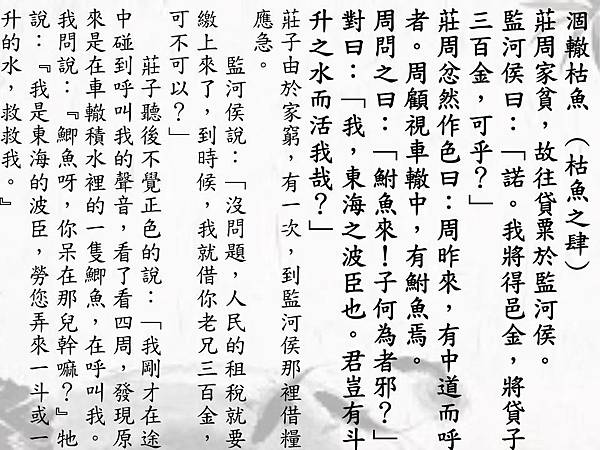 涸轍枯魚（枯魚之肆）
莊周家貧，故往貸粟於監河侯。
監河侯曰：「諾。我將得邑金，將貸子
三百金，可乎？」
莊周忿然作色曰：周昨來，有中道而呼
者。周顧視車轍中，有鮒魚焉。
周問之曰：「鮒魚來！子何為者邪？」
對曰：「我，東海之波臣也。君豈有斗
升之水而活我哉？」
莊子由於家窮，有一次，到監河侯那裡借糧
應急。
監河侯說：「沒問題，人民的租稅就要
繳上來了，到時候，我就借你老兄三百金，
可不可以？」
莊子聽後不覺正色的說：「我剛才在途
中碰到呼叫我的聲音，看了看四周，發現原
來是在車轍積水裡的一隻鯽魚，在呼叫我。
我問說：『鯽魚呀，你呆在那兒幹嘛？』牠
說：『我是東海的波臣，勞您弄來一斗或一
升的水，救救我。』